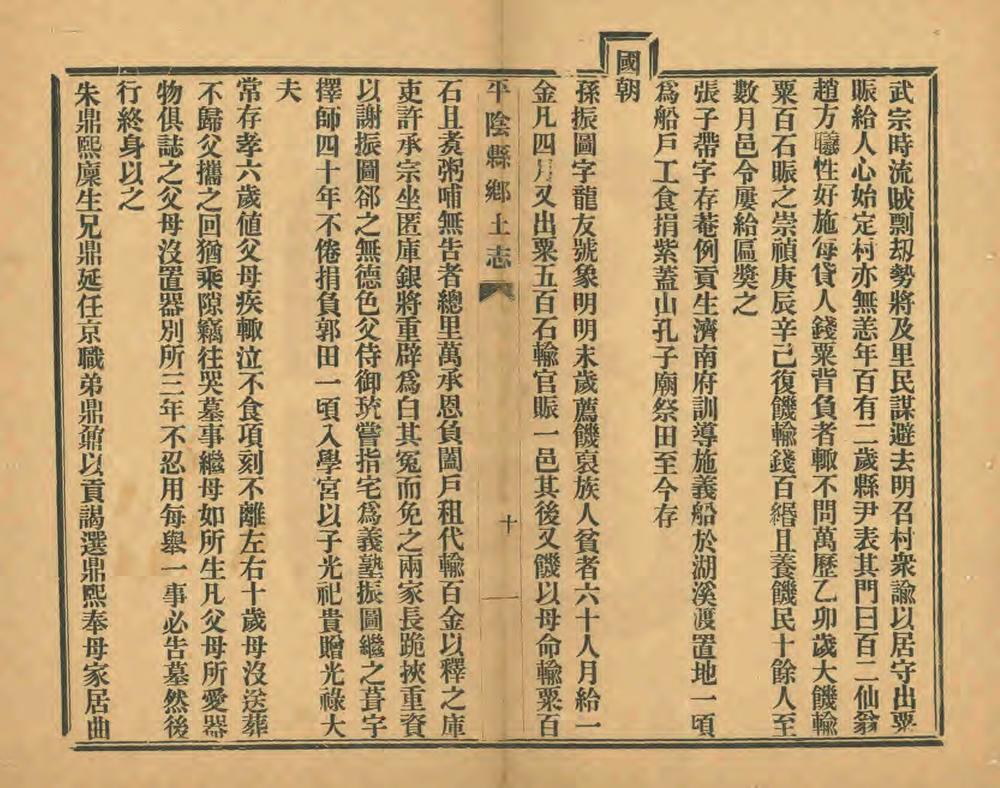 武宗時流賊剽刼勢將及里民謀避去明召村衆諭以居守出粟
賑給人心始定村亦無恙年百有二歲縣尹表其門曰百二仙翁
趙方曦性好施每貸人錢粟背負者輙不問萬歷乙卯歲大饑輸
粟百石賑之崇禎庚辰辛己復饑輸錢百緡且養饑民十餘人至
數月邑令屢給區奬之
張子帶字存菴例貢生濟南府訓導施義船於湖溪渡置地一頃
爲船戸工食捐紫蓋山孔子廟祭田至今存
國朝
孫振圖字龍友號象明明末歲薦饑哀族人貧者六十人月給一
金凡四月又出粟五百石輸官賑一邑其後又饑以母命輸粟百
平陰縣鄉土志
十
石且煑粥哺無告者總里萬承恩負闔戸租代輸百金以釋之庫
吏許承宗坐匿庫銀將重辟爲白其冤而免之兩家長跪挾重資
以謝振圖郤之無德色父侍御珫嘗指宅爲義塾振圖繼之葺宇
擇師四十年不倦捐負郭田一頃入學宮以子光祀貴贈光祿大
夫
常存孝六歲値父母疾輙泣不食項刻不離左右十歲母沒送葬
不歸父攜之回猶乘隙竊往哭墓事繼母如所生凡父母所愛器
物俱誌之父母沒置器別所三年不忍用每舉一事必告墓然後
行終身以之
朱鼎熙廩生兄鼎延任京職弟鼎鼐以貢謁選鼎熙奉母家居曲